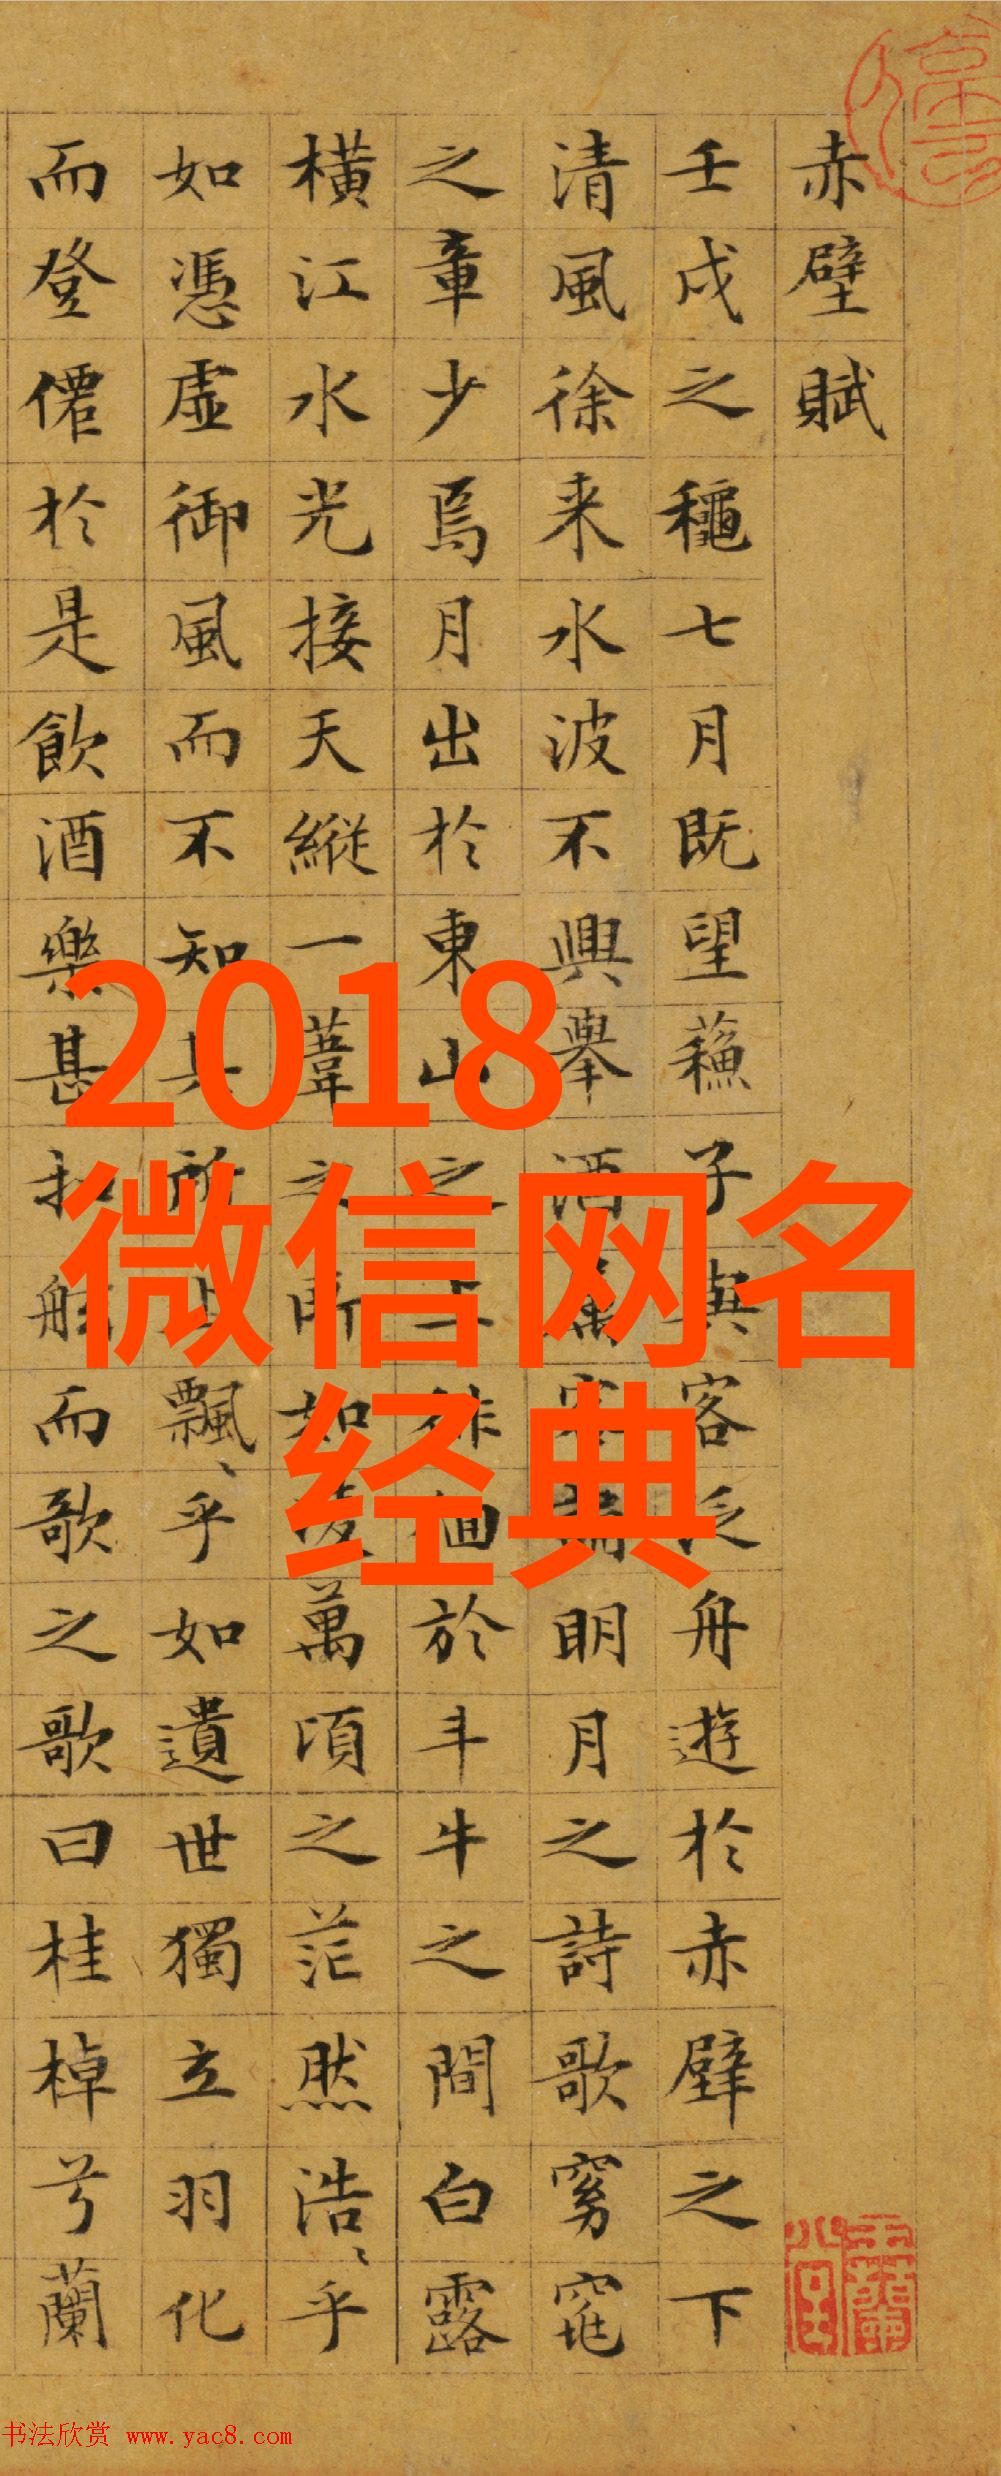 赤壁賦
壬戌之穐七月既望蘓子與客泛舟遊於赤壁之下
清風徐来水波不興舉酒屬客誦明月之詩歌窈窕
之章少焉月出於東山之上徘徊於斗牛之間白露
橫江水光接天縱一葦之所如凌萬頃之茫然浩〻乎
如憑虛御風而不知其所止飄〻乎如遺世獨立羽化
而登僊於是飲酒樂甚扣舷而歌之歌曰桂棹兮蘭
2018
微信网名
经典
书法欣赏 www.yac8.com